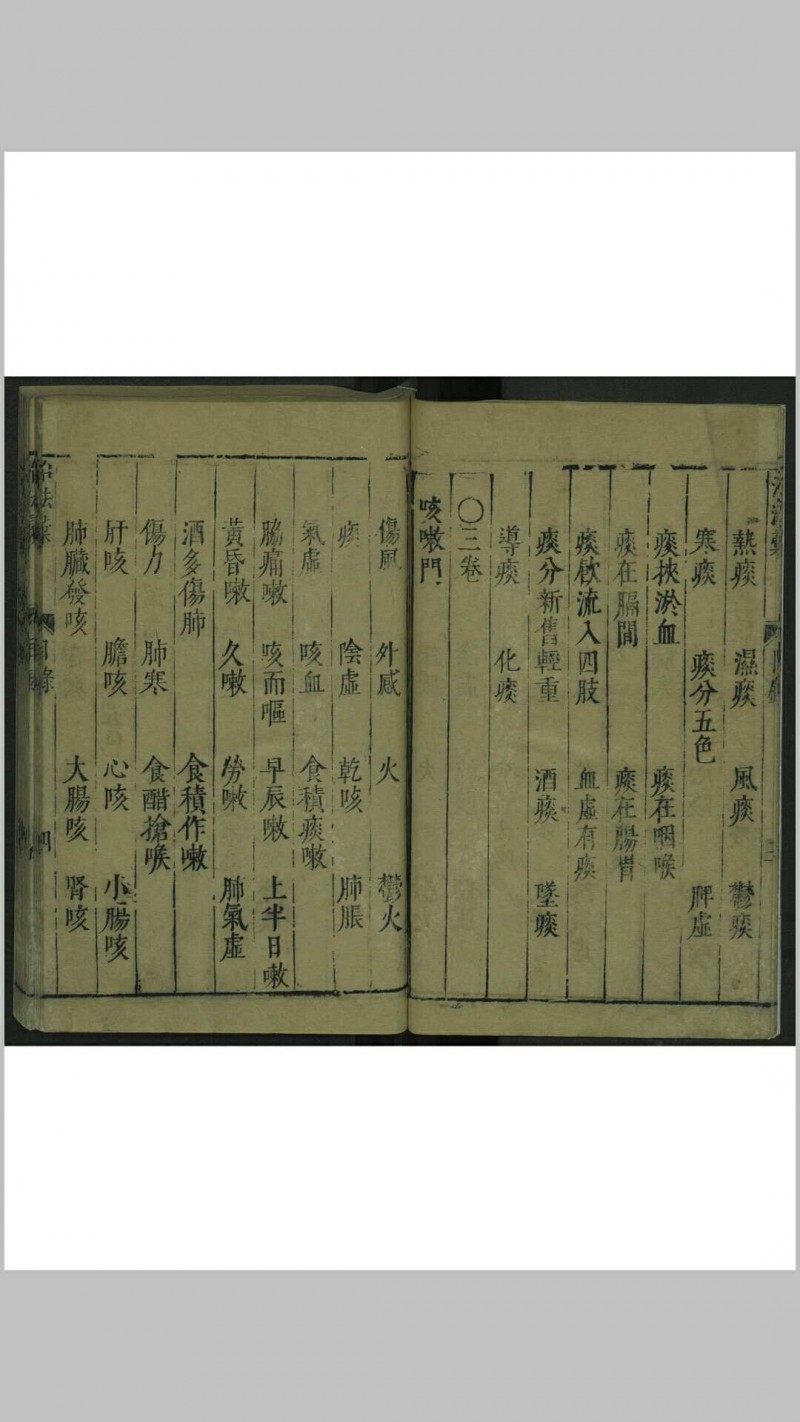 熱痰 濕痰 風痰 鬱痰
寒痰 痰分五色 脾虛
痰挾淤血 痰在咽喉
痰在膈間 痰在腸胃
痰飲流入四肢 血虛有痰
痰分新舊輕重 酒痰 墜痰
導痰 化痰
〇三卷
咳嗽門
傷風 外感 火 鬱火
痰 陰虛 乾咳 肺脹
氣虛 咳血 食積痰嗽
脇痛嗽 咳而嘔 早辰嗽 上半日嗽
黃昏嗽 久嗽 勞嗽 肺氣虛
酒多傷肺 食積作嗽
傷力 肺寒 食醋搶喉
肝咳 膽咳 心咳 小腸咳
肺臟發咳 大腸咳 腎咳
目錄 四